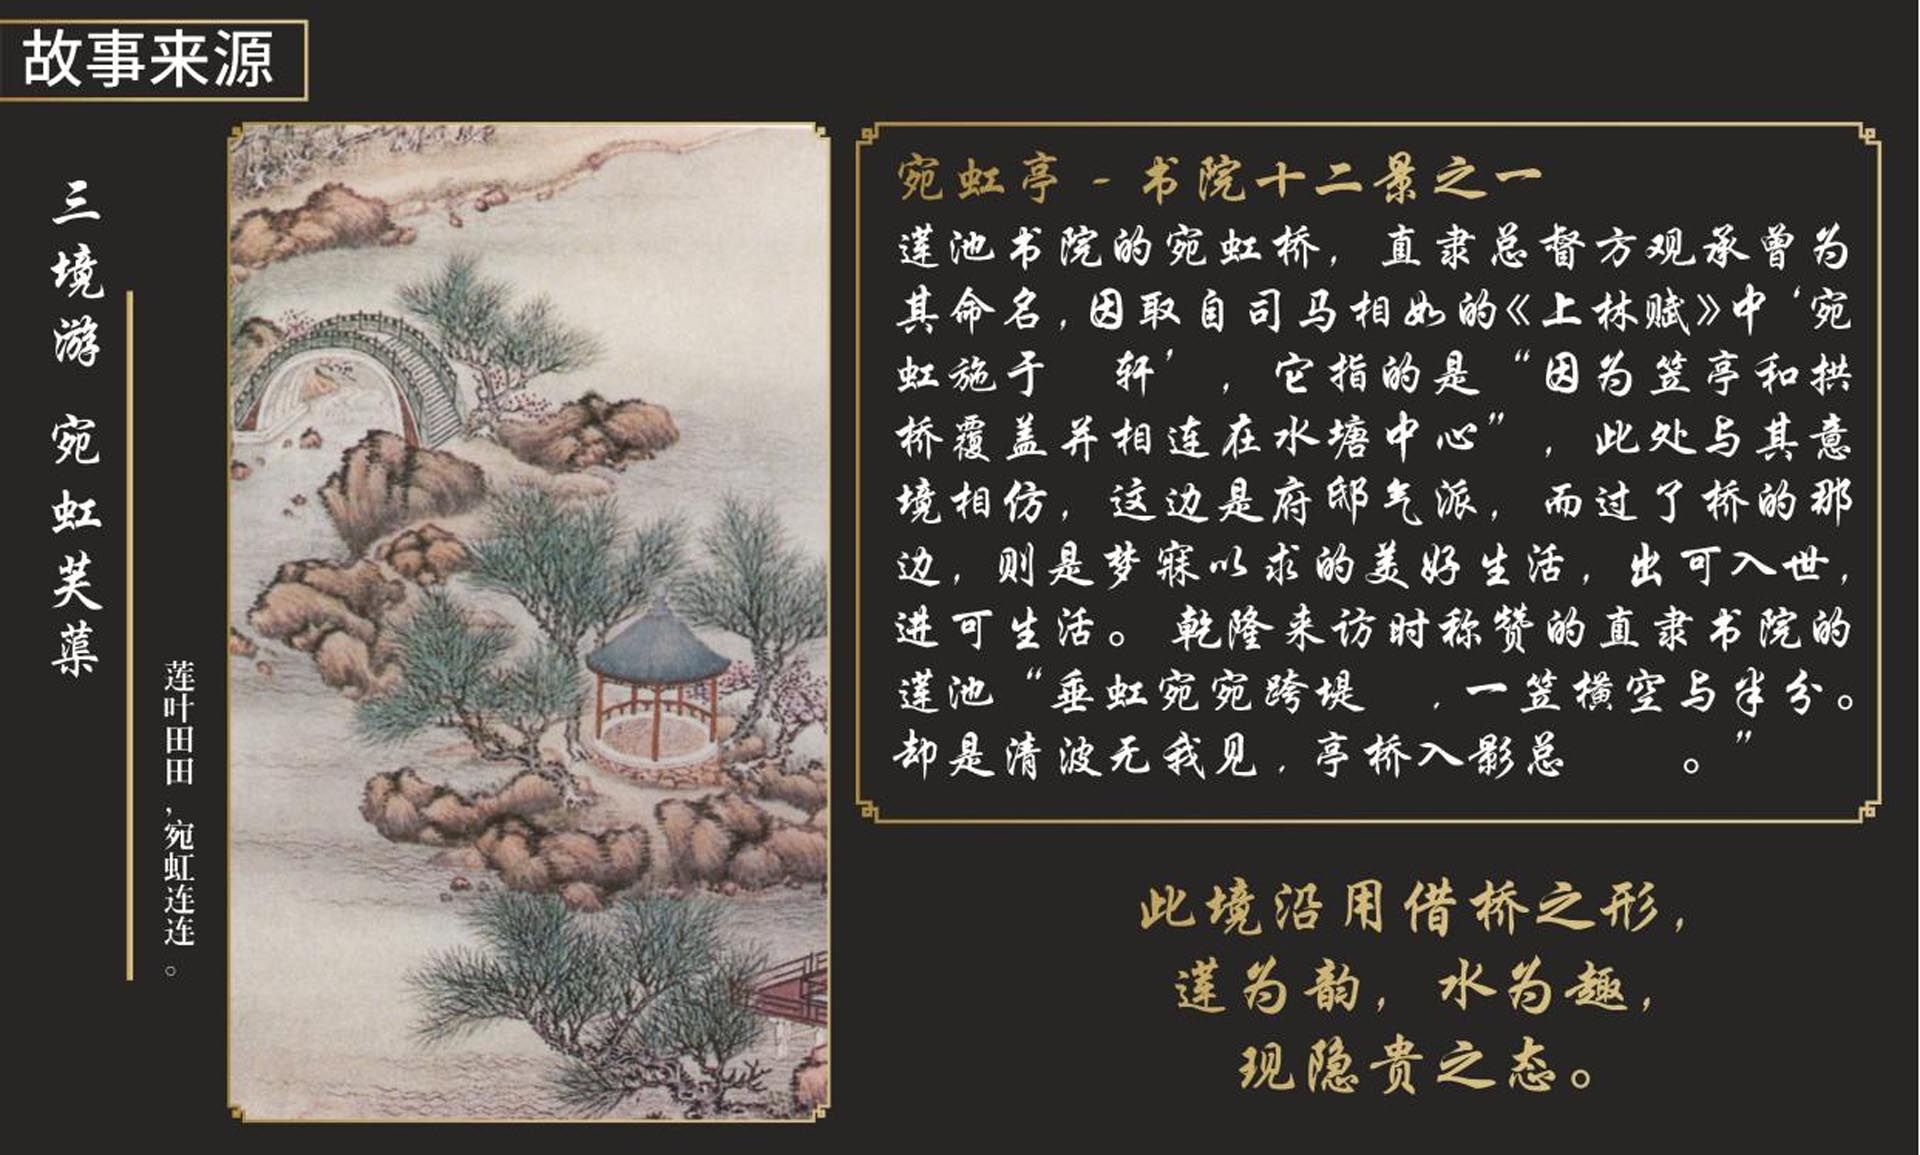 故事来源
三境游 宛虹芙蕖
莲叶田田，宛虹连连。
宛虹亭 - 书院十二景之一
莲池书院的宛虹桥，直隶总督方观承曾为
其命名，因取自司马相如的《上林赋》中‘宛
虹施于 轩’，它指的是“因为笠亭和拱
桥覆盖并相连在水塘中心”，此处与其意
境相仿，这边是府邸气派，而过了桥的那
边，则是梦寐以求的美好生活，出可入世，
进可生活。乾隆来访时称赞的直隶书院的
莲池“垂虹宛宛跨堤 ，一笠横空与半分。
却是清波无我见，亭桥入影总 。”
此境沿用借桥之形，
莲为韵，水为趣，
现隐贵之态。